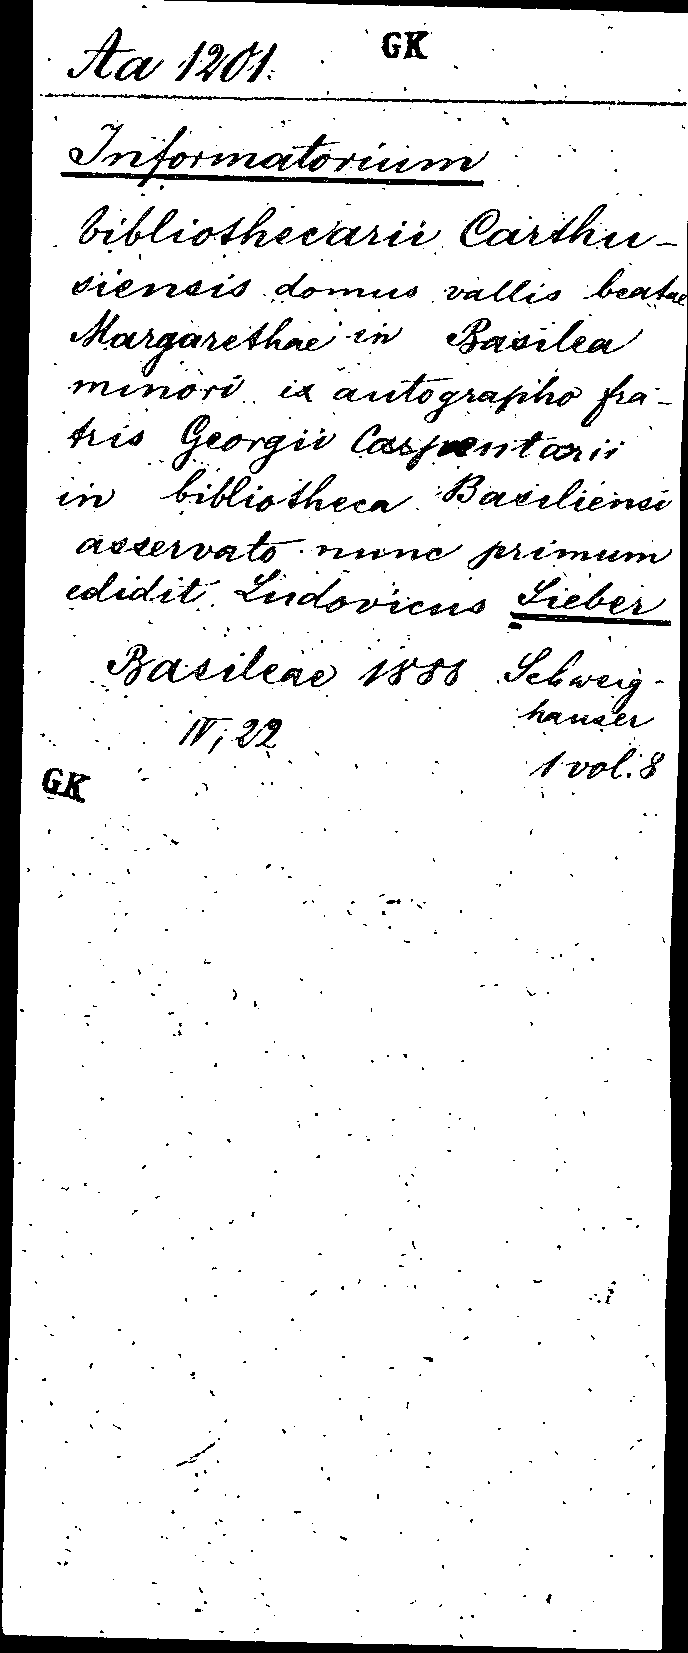 Aa 1201. GK
Informatorium
bibliothecarii Carthu-
siensis domus vallis beatae
Margarethae in Basilea
minori ex autographo fra-
tris Georgii Carpentarii
in bibliotheca Basiliensi
asservato nunc primum
edidit Ludovicus Sieber
Basileae 1888 Schweig-
hauser
IV, 22
1 vol. 8
GK